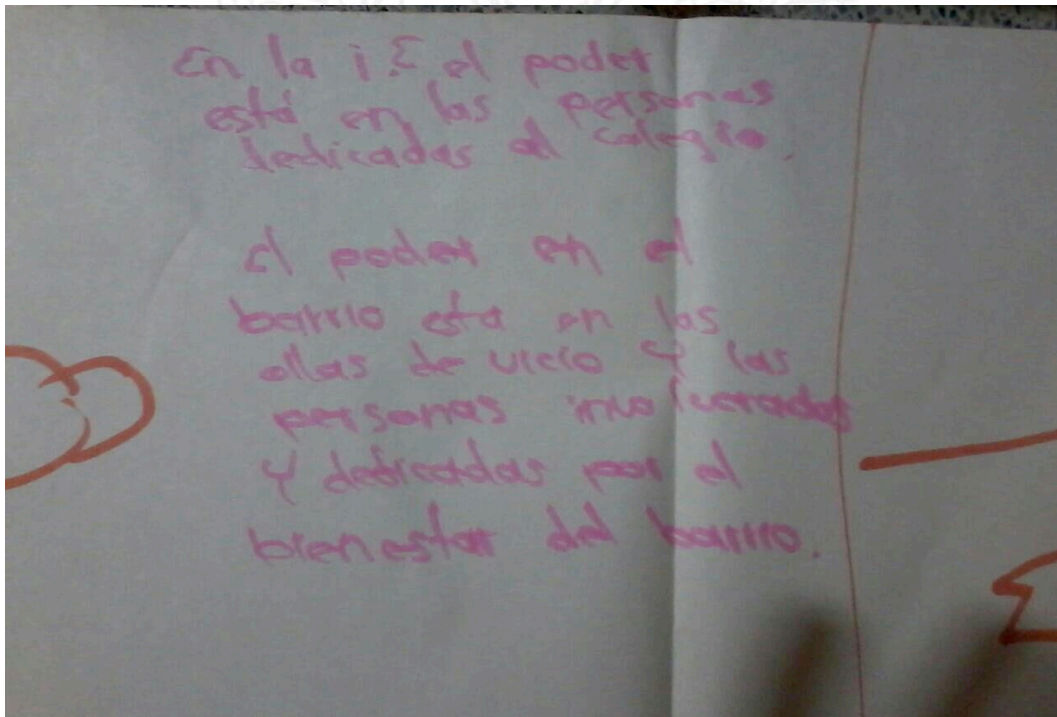 En la i.E el poder
está en las personas
dedicadas al colegio.
El poder en el
barrio esta en las
ollas de vicio y las
personas involucradas
y dedicadas por el
bienestar del barrio.